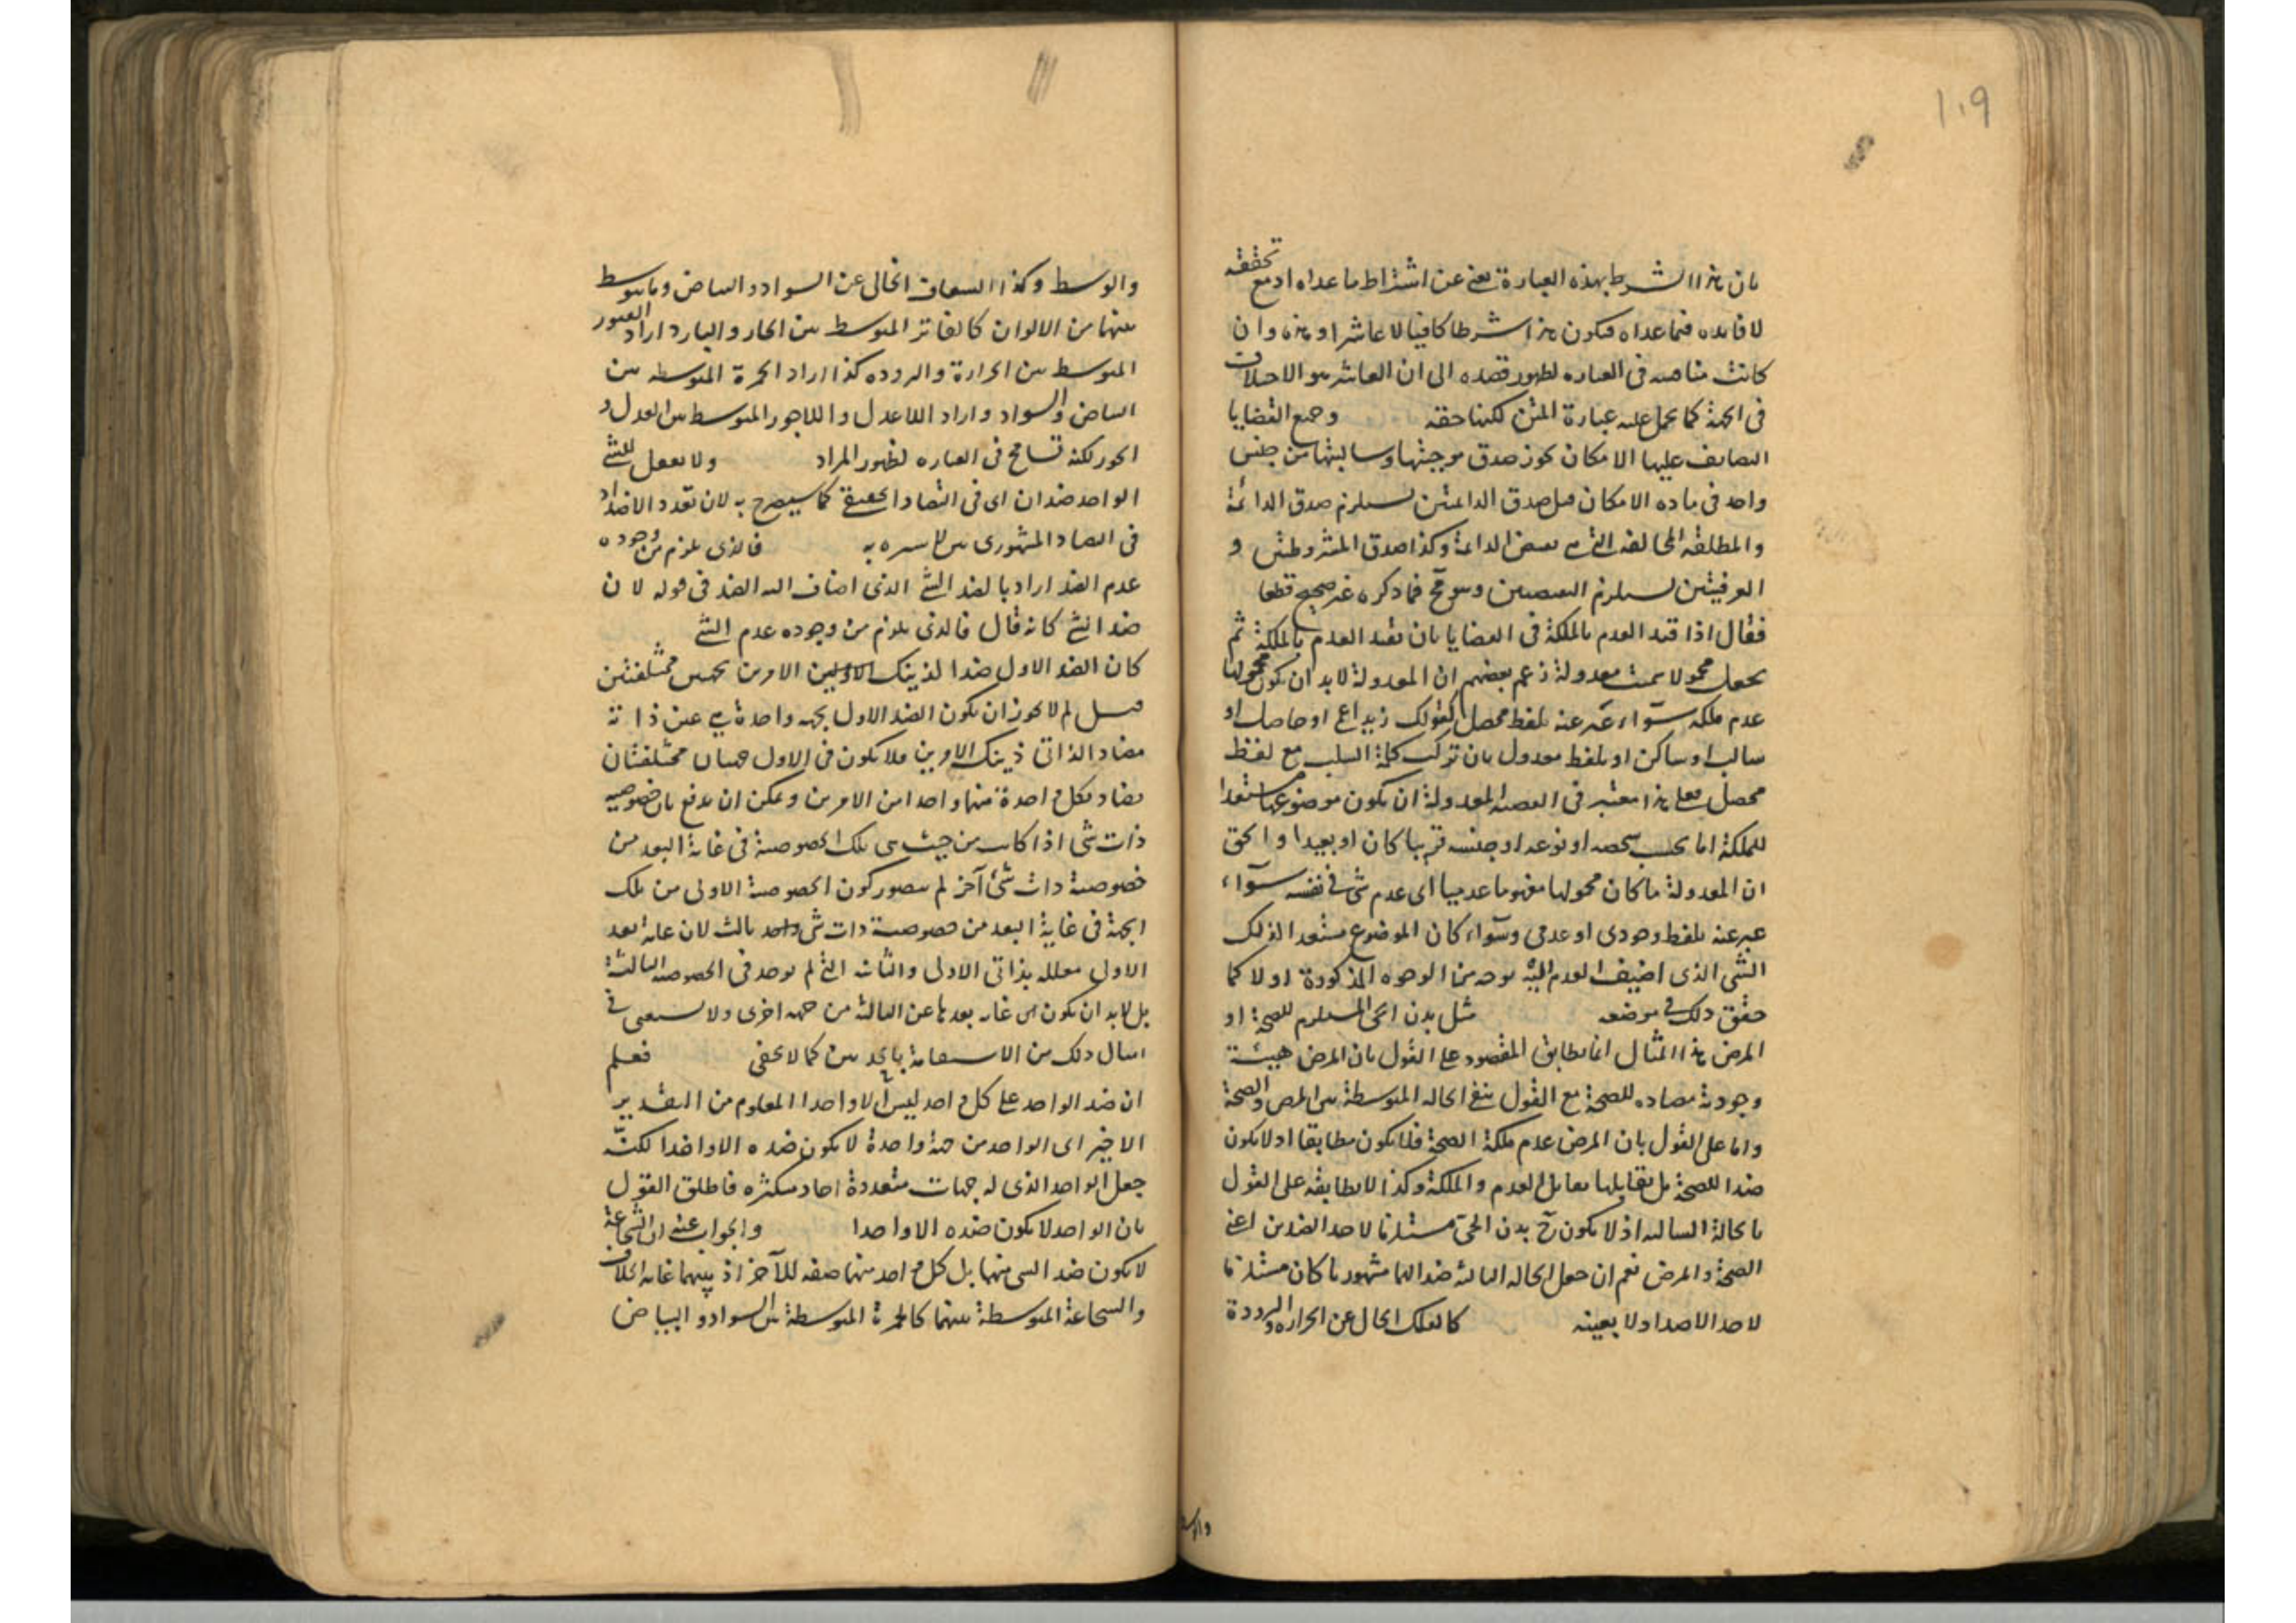 ١٠٩
بان هذا الشرط بهذه العبارة يغنى عن اشتراط ما عداه اذ مع تحققه
لا فائده فيما عداه فيكون هذا شرطا كافيا لا عاشرا وهذه وان
كانت مناقشه فى العباره لظهور قصده الى ان العاشر هو الاختلاف
فى الجهة كما يحمل عليه عبارة المتن لكنها حقه وجميع القضايا
الصادق عليها الامكان يجوز صدق موجبتها وسالبتها من جنس
واحد فى ماده الامكان قيل صدق الدائمتين يستلزم صدق الدائمة
والمطلقه المخالفه التى هى نقيض الدائمة وكذا صدق المشروطتين و
العرفيتين يستلزم النقيضين وهو مح فما ذكره غير صحيح قطعا
فقال اذا قيد العدم بالملكة فى القضايا بان يقيد العدم بالملكة ثم
يجعل محمولا سميت معدولة زعم بعضهم ان المعدولة لابد ان يكون محمولها
عدم ملكه سوآء عبر عنه بلفظ محصل كقولك زيد اعمى او جاهل او
سالب او ساكن او بلفظ معدول بان تركب كلمة السلب مع لفظ
محصل فعلى هذا معتبر فى القضيه المعدولة ان يكون موضوعها مستعدا
للملكة اما بحسب شخصه او نوعه او جنسه قريبا كان او بعيدا والحق
ان المعدولة ما كان محمولها مفهوما عدميا اى عدم شئ فى نفسه سوآء
عبر عنه بلفظ وجودى او عدمى وسوآء كان الموضوع مستعدا لذلك
الشئ الذى اضيف العدم اليه بوجه من الوجوه المذكورة او لا كما
حقق ذلك فى موضعه مثل بدن الحى المستلزم للصحة او
المرض هذا المثال انما يطابق المقصود على القول بان المرض هيئة
وجودية مضاده للصحة مع القول بنفى الحاله المتوسطة بين المرض والصحة
واما على القول بان المرض عدم ملكة الصحة فلا يكون مطابقا اذ لا يكون
ضدا للصحة بل يقابلها تقابل العدم والملكة وكذا لا يطابقه على القول
بالحالة الثالثه اذ لا يكون ح بدن الحى مستلزما لاحد الضدين اعنى
الصحة والمرض نعم ان جعل الحاله الثالثة ضدا لهما مشهوريا كان مستلزما
لاحد الاضداد لا بعينه كالفلك الخالى عن الحراره والبرودة
والوسط وكذا الشفاف الخالى عن السواد والبياض وما يتوسط
بينهما من الالوان كالفاتر المتوسط بين الحار والبارد اراد الفتور
المتوسط بين الحرارة والبروده كذا اراد الحمرة المتوسطه بين
البياض والسواد واراد اللاعدل واللاجور المتوسط بين العدل و
الجور لكنه تسامح فى العباره لظهور المراد ولا يعقل للشئ
الواحد ضدان اى فى التضاد الحقيقى كما سيصرح به لان تعدد الاضداد
فى التضاد المشهورى مما لا سره به فالذى يلزم من وجوده
عدم الضد اراد بالضد الشئ الذى اضاف اليه الضد فى قوله لان
ضد الشئ كانه قال فالذى يلزم من وجوده عدم الشئ
كان الضد الاول ضدا لذينك الامرين بجهتين مختلفتين
قيل لم لا يجوز ان يكون الضد الاول بجهه واحدة هى عين ذاته
مضادا لذاتى ذينك الامرين فلا يكون فى الاول جهتان مختلفتان
يضاد بكل واحدة منهما واحدا من الامرين ويمكن ان يدفع بان خصوصية
ذات شئ اذا كانت من حيث هى تلك الخصوصية فى غاية البعد من
خصوصية ذات شئ آخر لم يتصور كون الخصوصية الاولى من تلك
الجهة فى غاية البعد من خصوصية ذات شئ ثالث لان غايه البعد
الاولى معلله بذاتى الاولى والثانيه التى لم توجد فى الخصوصيه الثالثة
بل لابد ان يكون غايه بعدها عن الثالثة من جهه اخرى ولا
امثال ذلك من الاستعانة بالحدس كما لا يخفى فعلم
ان ضد الواحد على كل واحد ليس الا واحدا المعلوم من التقدير
الاخير اى الواحد من جهة واحدة لا يكون ضده الا واحدا لكنه
جعل الواحد الذى له جهات متعددة آحاد متكثره فاطلق القول
بان الواحد لا يكون ضده الا واحدا والجواب عنه ان الشجاعة
لا يكون ضدا لشئ منهما بل كل واحد منهما ضد للآخر اذ بينهما غايه الخلاف
والشجاعة المتوسطة بينهما كالحمرة المتوسطة بين السواد والبياض